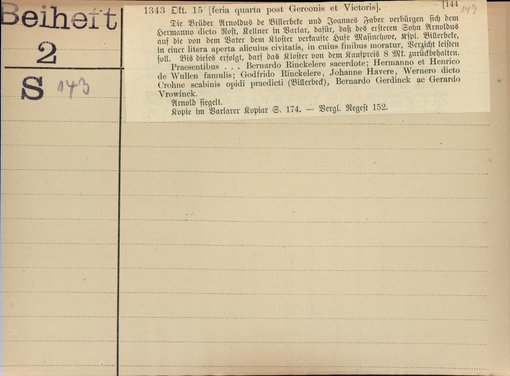 Beiheft
2
S 143
1343 Okt. 15 [feria quarta post Gereonis et Victoris]. [144
143
Die Brüder Arnoldus de Billerbete und Joannes Faber verbürgen sich dem
Hermanno dicto Rost, Kellner in Varlar, dafür, daß des ersteren Sohn Arnoldus
auf die von dem Vater dem Kloster verkaufte Hufe Masinchove, Kspl. Billerbete,
in einer litera aperta alicuius civitatis, in cuius finibus moratur, Verzicht leisten
soll. Bis dieses erfolgt, darf das Kloster von dem Kaufpreis 8 Mk. zurückbehalten.
Praesentibus . . . Bernardo Rinckelere sacerdote; Hermanno et Henrico
de Wullen famulis; Godfrido Rinckelere, Johanne Havere, Wernero dicto
Crohne scabinis opidi praedicti (Billerbeck), Bernardo Gerdinck ac Gerardo
Vrowinck.
Arnold siegelt.
Kopie im Varlarer Kopiar S. 174. — Vergl. Regest 152.